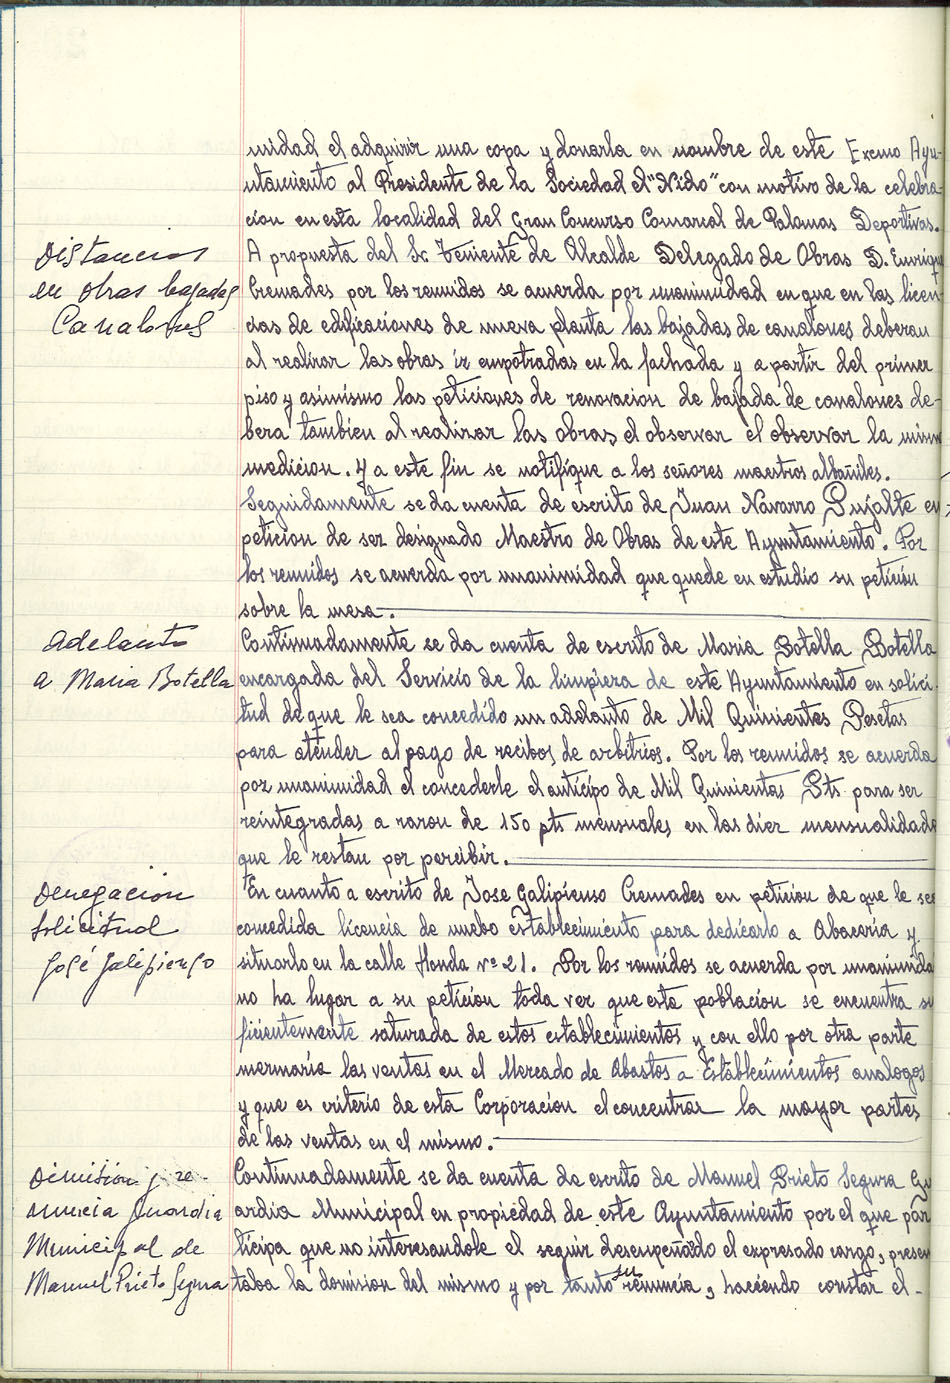 nidad el adquirir una copa y donarla en nombre de este Excmo Ayu-
ntamiento al Presidente de la Sociedad el "Nido" con motivo de la celebra-
cion en esta localidad del Gran Concurso Comarcal de Palomas Deportivas.
Distancias
en obras bajadas
Canalones
A propuesta del Sr Teniente de Alcalde Delegado de Obras D. Enrique
Cremades por los reunidos se acuerda por unanimidad en que en las licen-
cias de edificaciones de nueva planta las bajadas de canalones deberan
al realizar las obras ir empotradas en la fachada y a partir del primer
piso y asimismo las peticiones de renovacion de bajada de canalones de-
bera tambien al realizar las obras, el observar el observar la misma
medicion. Y a este fin se notifique a los señores maestros albañiles.
Seguidamente se da cuenta de escrito de Juan Navarro Pujalte en
peticion de ser designado Maestro de Obras de este Ayuntamiento. Por
los reunidos se acuerda por unanimidad que quede en estudio su petición
sobre la mesa.
Adelanto
a Maria Botella
Continuadamente se da cuenta de escrito de Maria Botella Botella
encargada del Servicio de la limpieza de este Ayuntamiento en solici-
tud de que le sea concedido un adelanto de Mil Quinientes Pesetas
para atender al pago de recibos de arbitrios. Por los reunidos se acuerda
por unanimidad el concederle el anticipo de Mil Quinientas Pts para ser
reintegradas a razon de 150 pts mensuales en las diez mensualidade
que le restan por percibir.
Denegacion
Solicitud
José Galipienso
En cuanto a escrito de Jose Galipienso Cremades en peticion de que le sea
concedida licencia de nuebo establecimiento para dedicarlo a Abaceria y
situarlo en la calle Honda nº 21. Por los reunidos se acuerda por unanimida
no ha lugar a su petición toda vez que esta poblacion se encuentra su
ficientemente saturada de estos establecimientos y con ello por otra parte
mermaria las ventas en el Mercado de Abastos a Establecimientos analogos
y que es criterio de esta Corporacion el concentrar la mayor partes
de las ventas en el mismo.
Dimitiòn y re-
nuncia Guardia
Municipal de
Manuel Prieto Segura
Continuadamente se da cuenta de escrito de Manuel Prieto Segura Gu
ardia Municipal en propiedad de este Ayuntamiento por el que par
ticipa que no interesandole el seguir desempeñado el expresado cargo, presen
taba la domision del mismo y por tanto su renuncia, haciendo constar el-